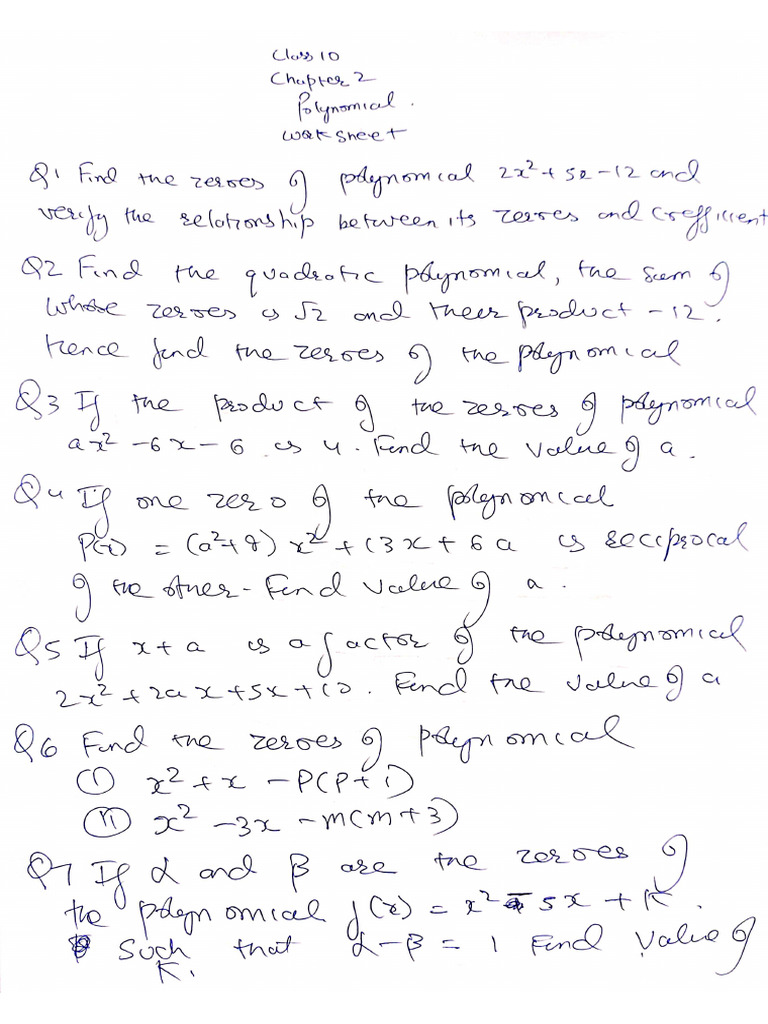 Class 10
Chapter 2
Polynomial.
Worksheet
Q1 Find the zeroes of polynomial 2x²+5x-12 and
verify the relationship between its zeroes and coefficient
Q2 Find the quadratic polynomial, the sum of
whose zeroes is √2 and their product -12.
Hence find the zeroes of the polynomial
Q3 If the product of the zeroes of polynomial
ax² -6x-6 is 4. Find the value of a.
Q4 If one zero of the polynomial
P(x) = (a²+9)x²+13x+6a is reciprocal
of the other- Find value of a.
Q5 If x+a is a factor of the polynomial
2x²+2ax+5x+10. Find the value of a
Q6 Find the zeroes of polynomial
(i) x²+x -P(P+1)
(ii) x² -3x -m(m+3)
Q7 If α and β are the zeroes of
the polynomial f(x) = x²-5x+K.
such that α-β = 1 Find value of
K.